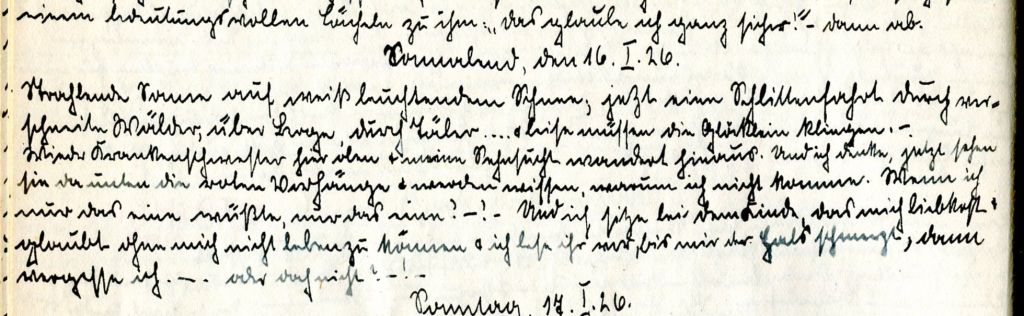 einem bedeutungsvollen Lächeln zu ihm: „das glaube ich ganz sicher!“ – dann ab.
Sonnabend, den 16. I. 26.
Strahlende Sonne auf weiß leuchtendem Schnee; jetzt eine Schlittenfahrt durch ver-
schneite Wälder, über Berge, durch Täler .... & leise müssen die Glöcklein klingen. –
Wieder Krankenschwester hier oben & meine Sehnsucht wandert hinaus. Und ich denke, jetzt sehen
sie da unten die roten Vorhänge & werden wissen, warum ich nicht komme. Wenn ich
nur das eine wüßte, nur das eine? – ! – Und ich sitze bei dem Kinde, das mich liebkost &
glaubt ohne mich nicht leben zu können & ich lese ihr vor, bis mir der Hals schmerzt, dann
vergesse ich. – . oder doch nicht? – ! –
Sonntag, 17. I. 26.